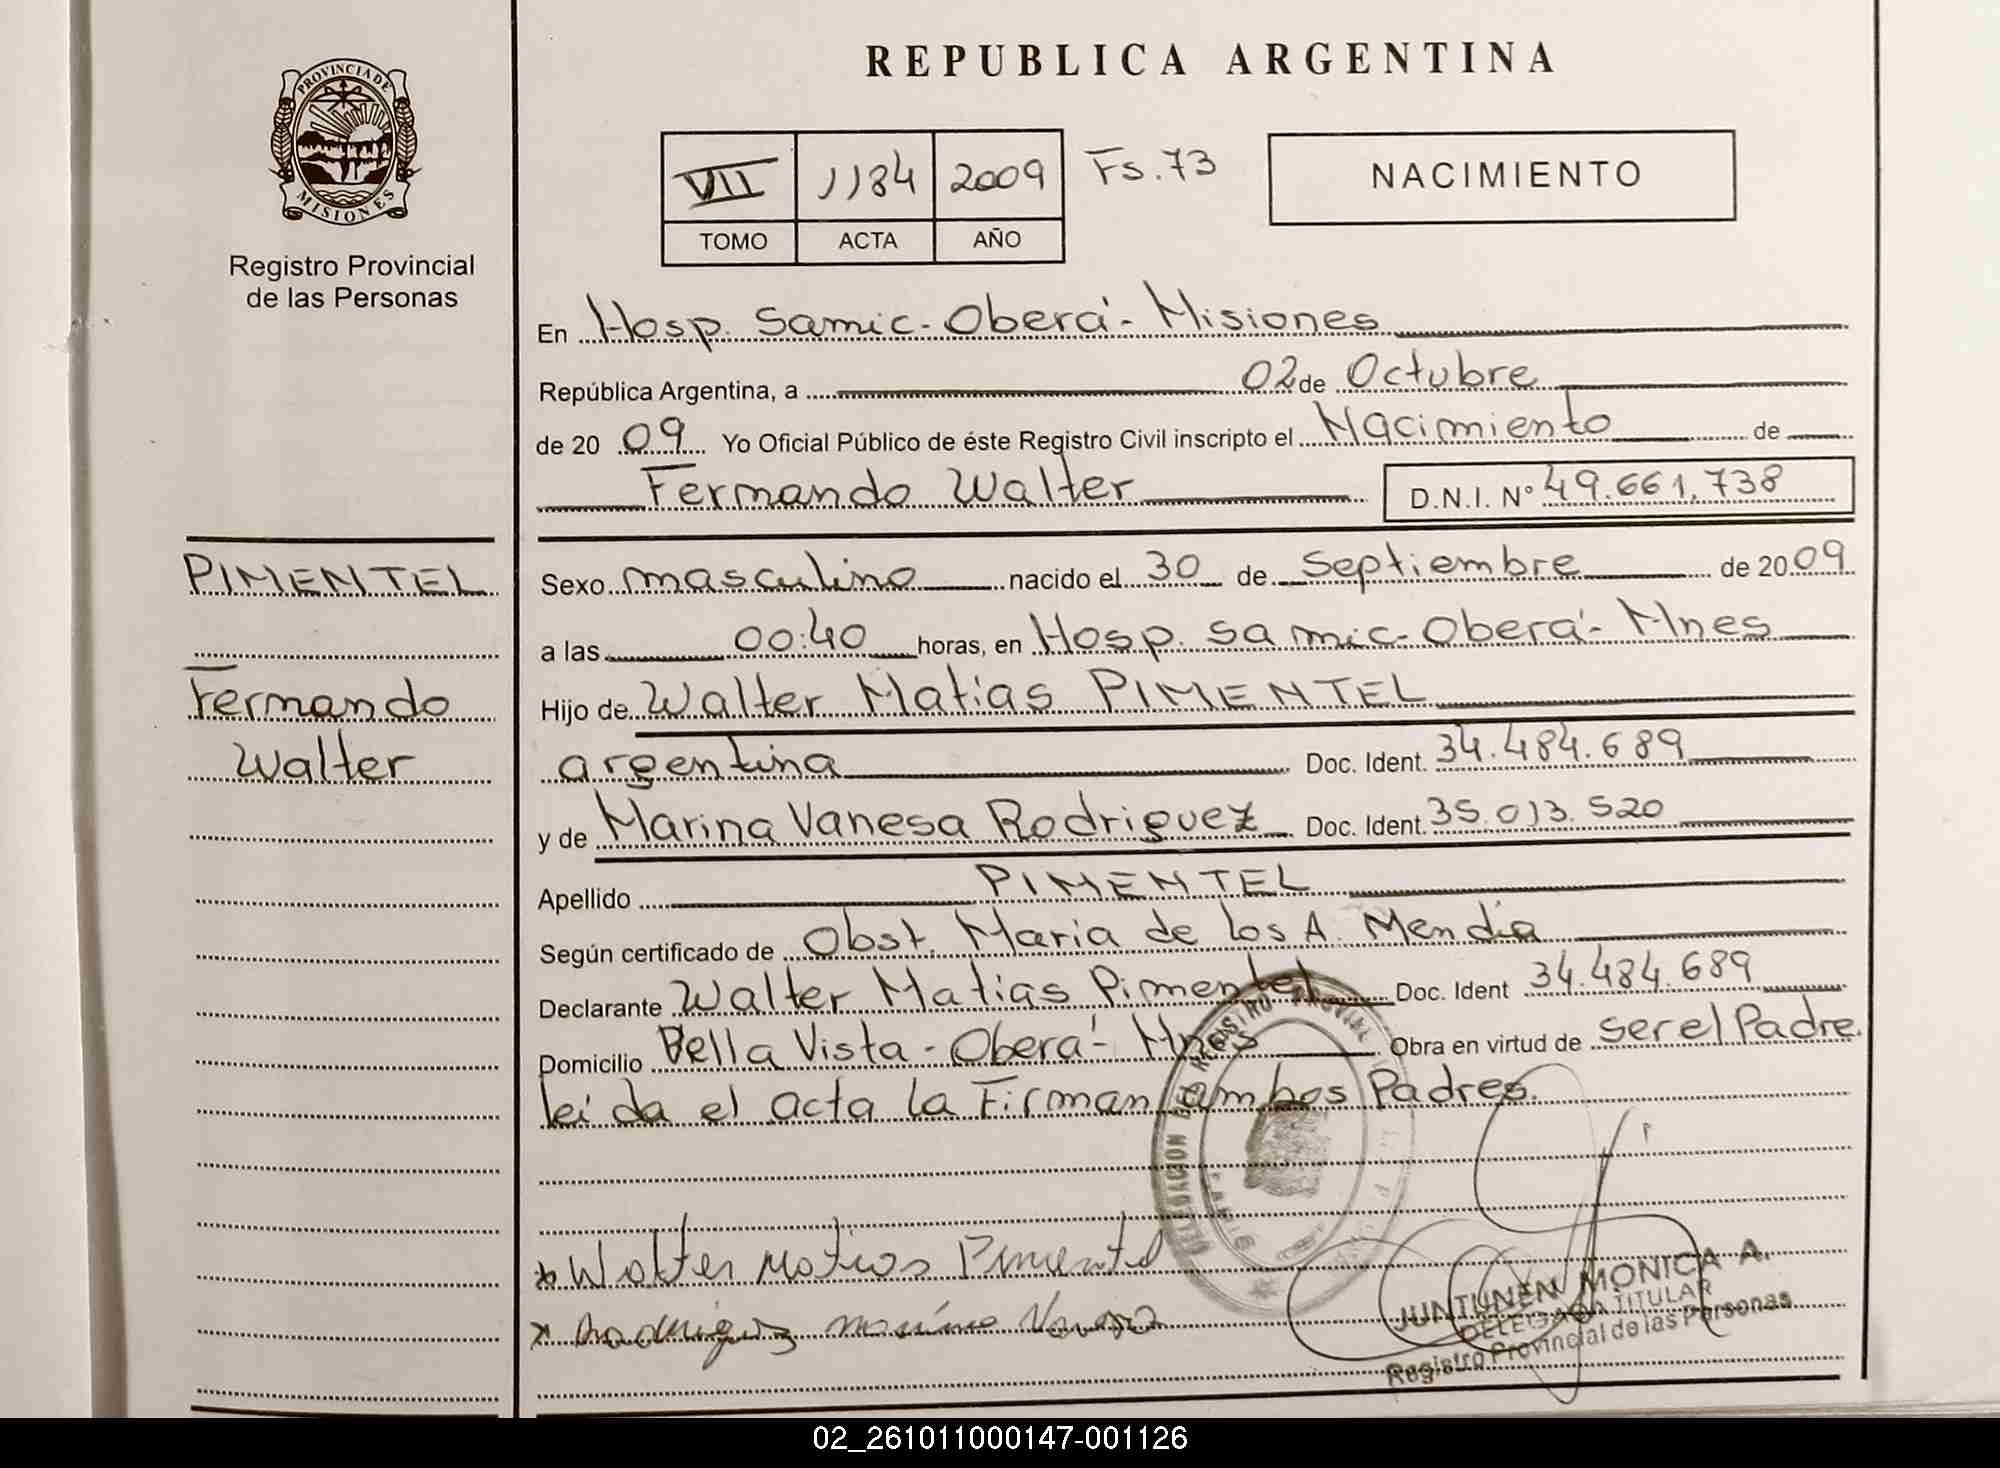 REPUBLICA ARGENTINA
PROVINCIA DE
MISIONES
Registro Provincial
de las Personas
VII 1184 2009 Fs. 73
TOMO ACTA AÑO
NACIMIENTO
En Hosp. Samic - Oberá - Misiones
República Argentina, a 02 de Octubre
de 20 09 Yo Oficial Público de éste Registro Civil inscripto el Nacimiento de
Fernando Walter D.N.I. Nº 49.661.738
PIMENTEL
Fernando
Walter
Sexo masculino nacido el 30 de Septiembre de 20 09
a las 00:40 horas, en Hosp. Samic - Oberá - Mnes
Hijo de Walter Matias PIMENTEL
argentina Doc. Ident. 34.484.689
y de Marina Vanesa Rodriguez Doc. Ident. 35.013.520
Apellido PIMENTEL
Según certificado de Obst. Maria de los A. Mendia
Declarante Walter Matias Pimentel Doc. Ident 34.484.689
Domicilio Bella Vista - Oberá - Mnes Obra en virtud de ser el Padre.
leída el acta la Firman ambos Padres.
DELEGACION DEL REGISTRO
x Walter Matias Pimentel
x Rodriguez Marina Vanesa
JUNTUNEN MÓNICA A.
DELEGADA TITULAR
Registro Provincial de las Personas
02_261011000147-001126